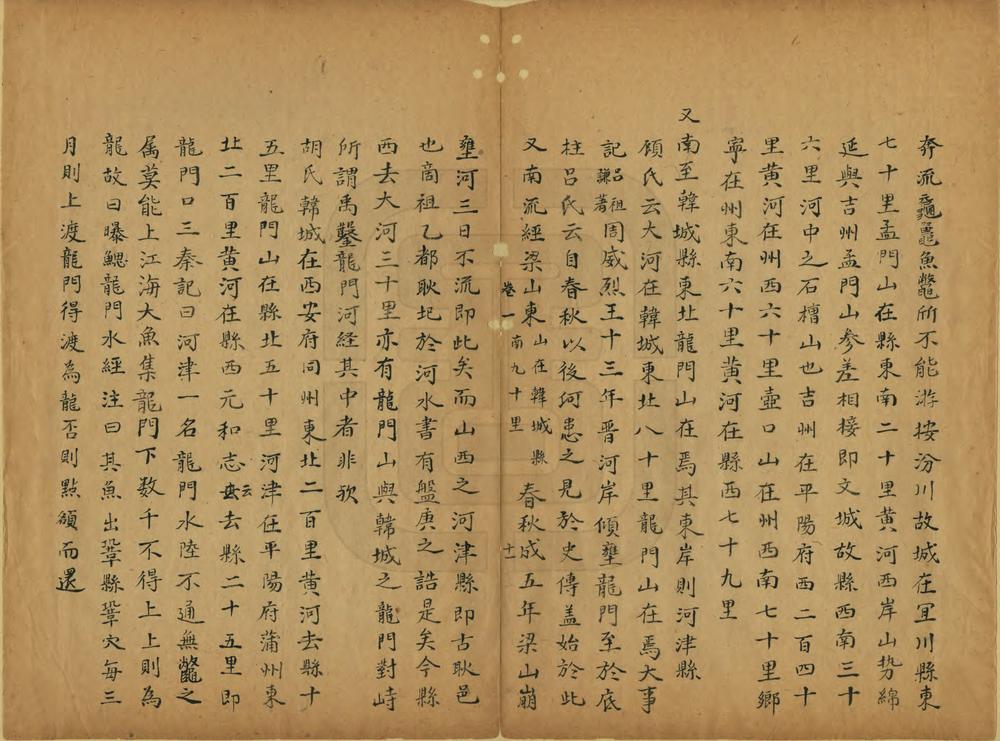 奔流黿鼉魚鼈所不能游按汾川故城在宜川縣東
七十里孟門山在縣東南二十里黄河西岸山势綿
延與吉州孟門山参差相接即文城故縣西南三十
六里河中之石槽山也吉州在平陽府西二百四十
里黄河在州西六十里壷口山在州西南七十里鄉
寧在州東南六十里黄河在縣西七十九里
又南至韓城縣東北龍門山在焉其東岸則河津縣
顾氏云大河在韓城東北八十里龍門山在焉大事
記吕祖謙著周威烈王十三年晋河岸傾壅龍門至於底
柱吕氏云自春秋以後河患之見於史傳盖始於此
又南流經梁山東山在韓城縣南九十里春秋成五年梁山崩
卷一 十一
壅河三日不流即此矣而山西之河津縣即古耿邑
也商祖乙都耿圯於河水書有盤庚之誥是矣今縣
西去大河三十里亦有龍門山與韓城之龍門對峙
所謂禹鑿龍門河経其中者非欤
胡氏韓城在西安府同州東北二百里黄河去縣十
五里龍門山在縣北五十里河津在平陽府蒲州東
北二百里黄河在縣西元和志云去縣二十五里即
龍門口三秦記曰河津一名龍門水陸不通無鼈之
属莫能上江海大魚集龍門下数千不得上上則為
龍故曰曝鰓龍門水經注曰其魚出鞏縣鞏穴每三
月則上渡龍門得渡為龍否則點額而還